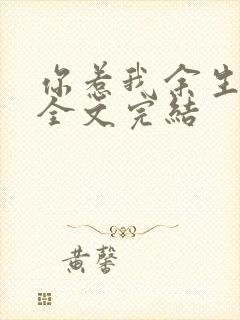 你惹我余生
全文完结
黄馨